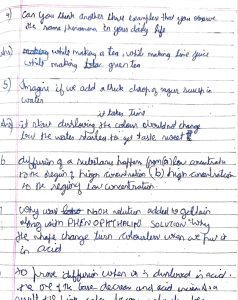 4) Can you think another three examples that you observe
the same phenomenon in your daily life
Ans) while making a tea, while making lime juice
while making green tea
5) Imagine if we add a thick drop of sugar syrup in
water
it takes time
Ans) it start dissolving the colour would change
but the water starts to get taste sweet
6 diffusion of a substance happen from (a) low concentration
to the region of high concentration (b) high concentration
to the region low concentration.
why was NaOH solution added to
along with PHENOPHTHALIN SOLUTION. Why
the shape change turn colourless when we put it
in acid
To prove diffusion when it is dissolved in acid.
the of the base decrease and acid